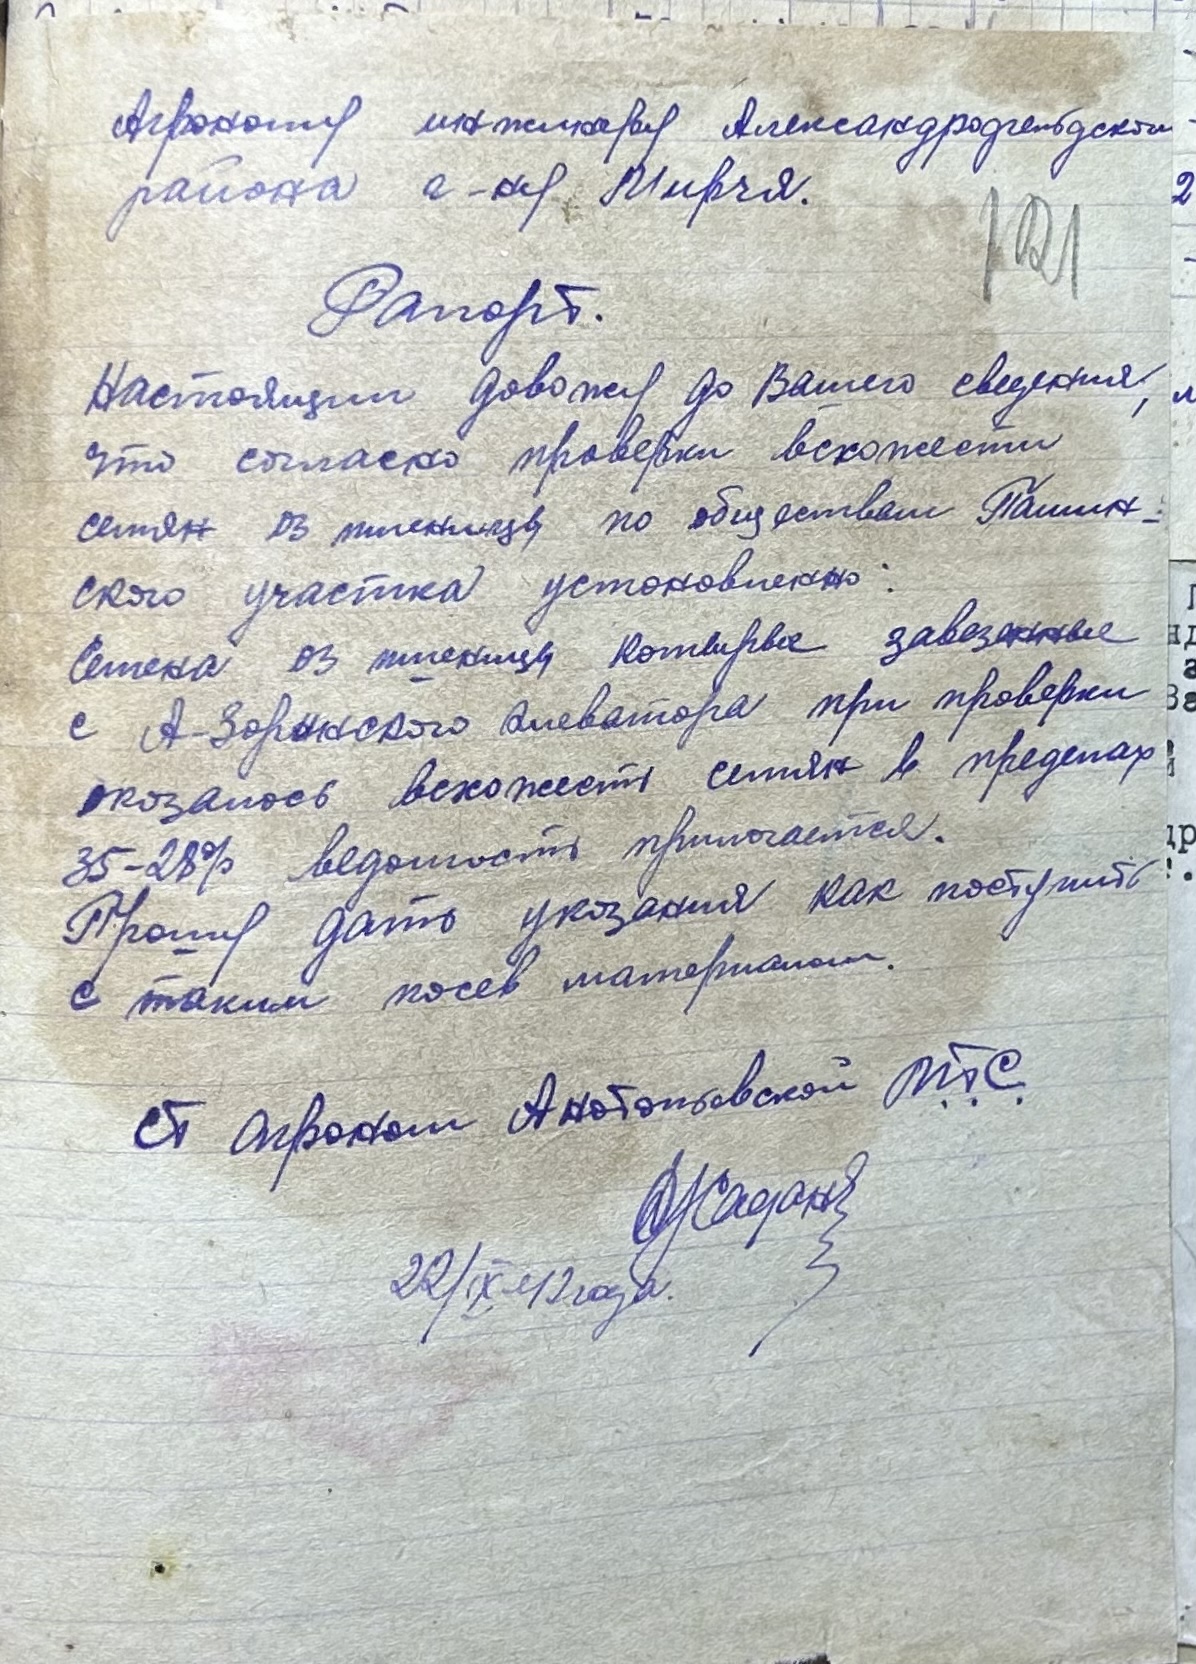 Агроному инженеру Александродгендском
района г-ну Мирчя.
121
Рапорт.
Настоящим довожу до Вашего сведения,
что согласно проверки всхожести
семян оз пшеницы по обществам Пашин-
ского участка установленно:
Семена оз пшеницы которые завезенные
с А-Зоринского элеватора при проверки
оказалось всхожесть семян в пределах
35-28% ведомость прилогается.
Прошу дать указания как поступить
с таким посев материалом.
Ст агроном Анотольевской М.Т.С.
22/IX-42 года.